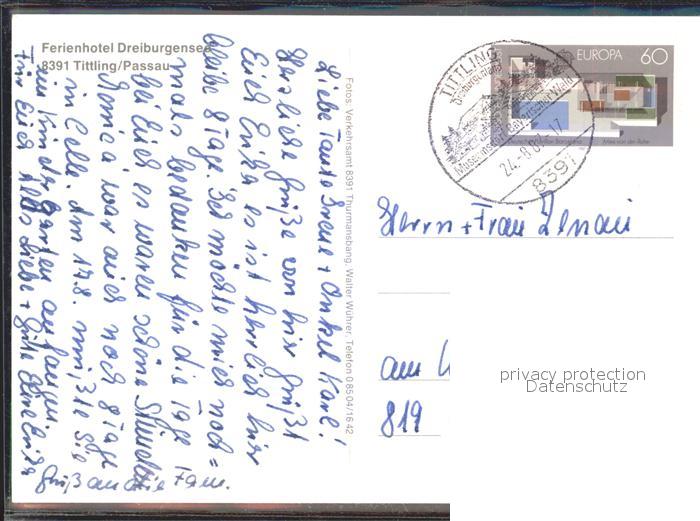 Ferienhotel Dreiburgensee
8391 Tittling/Passau
Liebe Tante Irene + Onkel Karl!
Herzliche Grüße von hier grüßt
Euch Erika es ist herrlich hier
bleibe 8 Tage. Ich möchte mich noch=
mals bedanken für die Tage
bei Euch es waren schöne Stunden
Monica war auch noch 8 Tage
in Celle. Am 17.8. mußte sie
im Kindergarten anfangen.
Für Euch alles Liebe + Gute Eure Erika
Gruß an die Fam.
Fotos: Verkehrsamt 8391 Thurmansbang, Walter Wührer, Telefon 08504/1642
TITTLING
Dreiburgenland
Museumsdorf Bayerischer Wald
24.-8.87-17
8391
EUROPA 60
Deutscher Pavillon Barcelona Mies van der Rohe
Herrn + Frau
am
819
privacy protection
Datenschutz